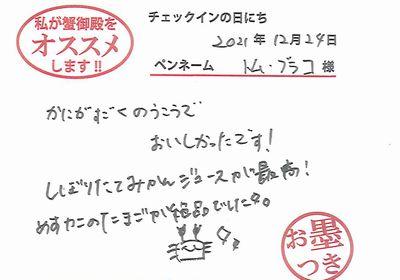 私が蟹御殿を
オススメ
します!!
チェックインの日にち
2021年12月29日
ペンネーム トム・ブラコ 様
かにがすごくのうこうで
おいしかったです!
しぼりたてみかんジュースが最高!
めすカニのたまごが絶品でした。
お墨
つき